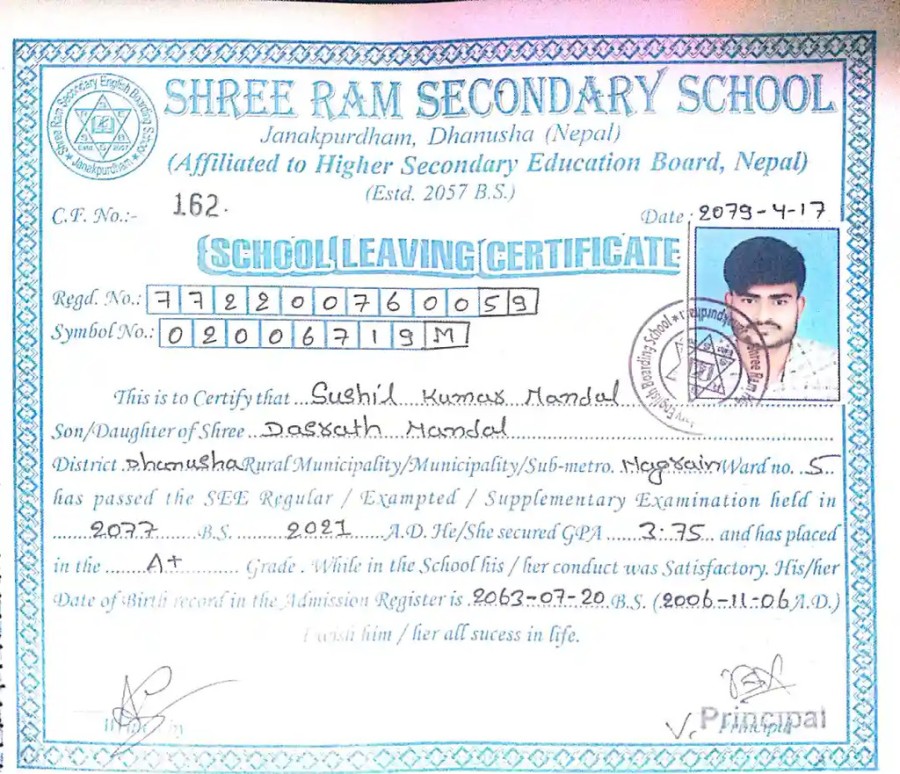 SHREE RAM SECONDARY SCHOOL
Janakpurdham, Dhanusha (Nepal)
(Affiliated to Higher Secondary Education Board, Nepal)
(Estd. 2057 B.S.)
C.F. No.:- 162. Date: 2079-4-17
SCHOOL LEAVING CERTIFICATE
Regd. No.: 772200760059
Symbol No.: 02006719M
This is to Certify that Sushil Kumar Mandal
Son/Daughter of Shree Dasrath Mandal
District Dhanusha Rural Municipality/Municipality/Sub-metro. Nagrain Ward no. 5
has passed the SEE Regular / Exampted / Supplementary Examination held in
2077 B.S. 2021 A.D. He/She secured GPA 3.75 and has placed
in the A+ Grade. While in the School his / her conduct was Satisfactory. His/her
Date of Birth record in the Admission Register is 2063-07-20 B.S. (2006-11-06 A.D.)
I wish him / her all sucess in life.
Principal
Principal
Shree Ram Secondary English Boarding School
Janakpurdham